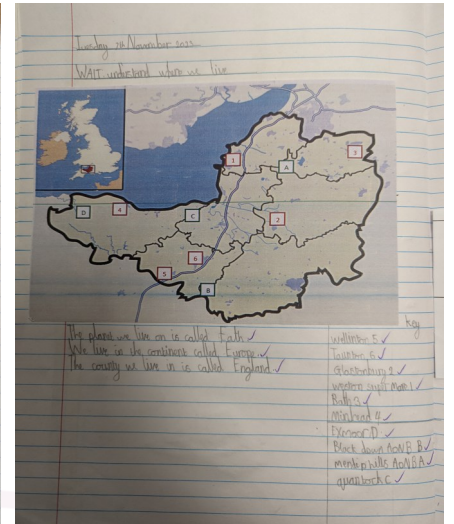 Tuesday November
WALT understand where we live
1
3
A
D
4
C
2
6
5
B
The planet we live on is called Eath
We live in the continent called Europe.
The county we live in is called England.
key
wellinton 5
Taunton 6
Glastonbury 2
weston Mare 1
Bath 3
Minhead 4
Exmoor D
Black down AoNB B
hills AoNB A
quantock C